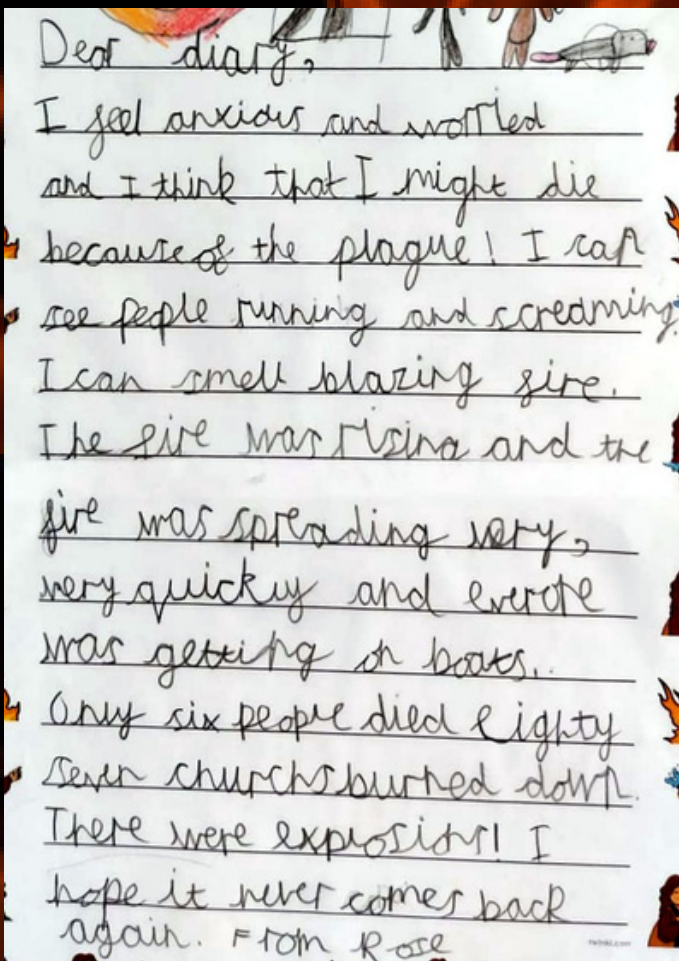 Dear diary,
I feel anxious and worried
and I think that I might die
because of the plague! I can
see people running and screaming.
I can smell blazing fire.
The fire was rising and the
fire was spreading very,
very quickly and everone
was getting on boats.
Only six people died eighty
seven churchs burned down.
There were explosions! I
hope it never comes back
again. From Rose
twinkl.com